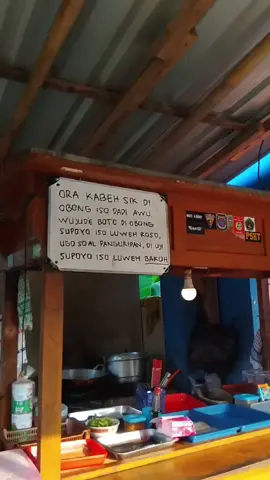 ORA KABEH SIK DI
OBONG ISO DADI AWU,
WUJUDE BOTO DI OBONG
SUPOYO ISO LUWEH ROSO,
UGO SOAL PANGURIPAN, DI UJI
SUPOYO ISO LUWEH BAKOH
PSKT